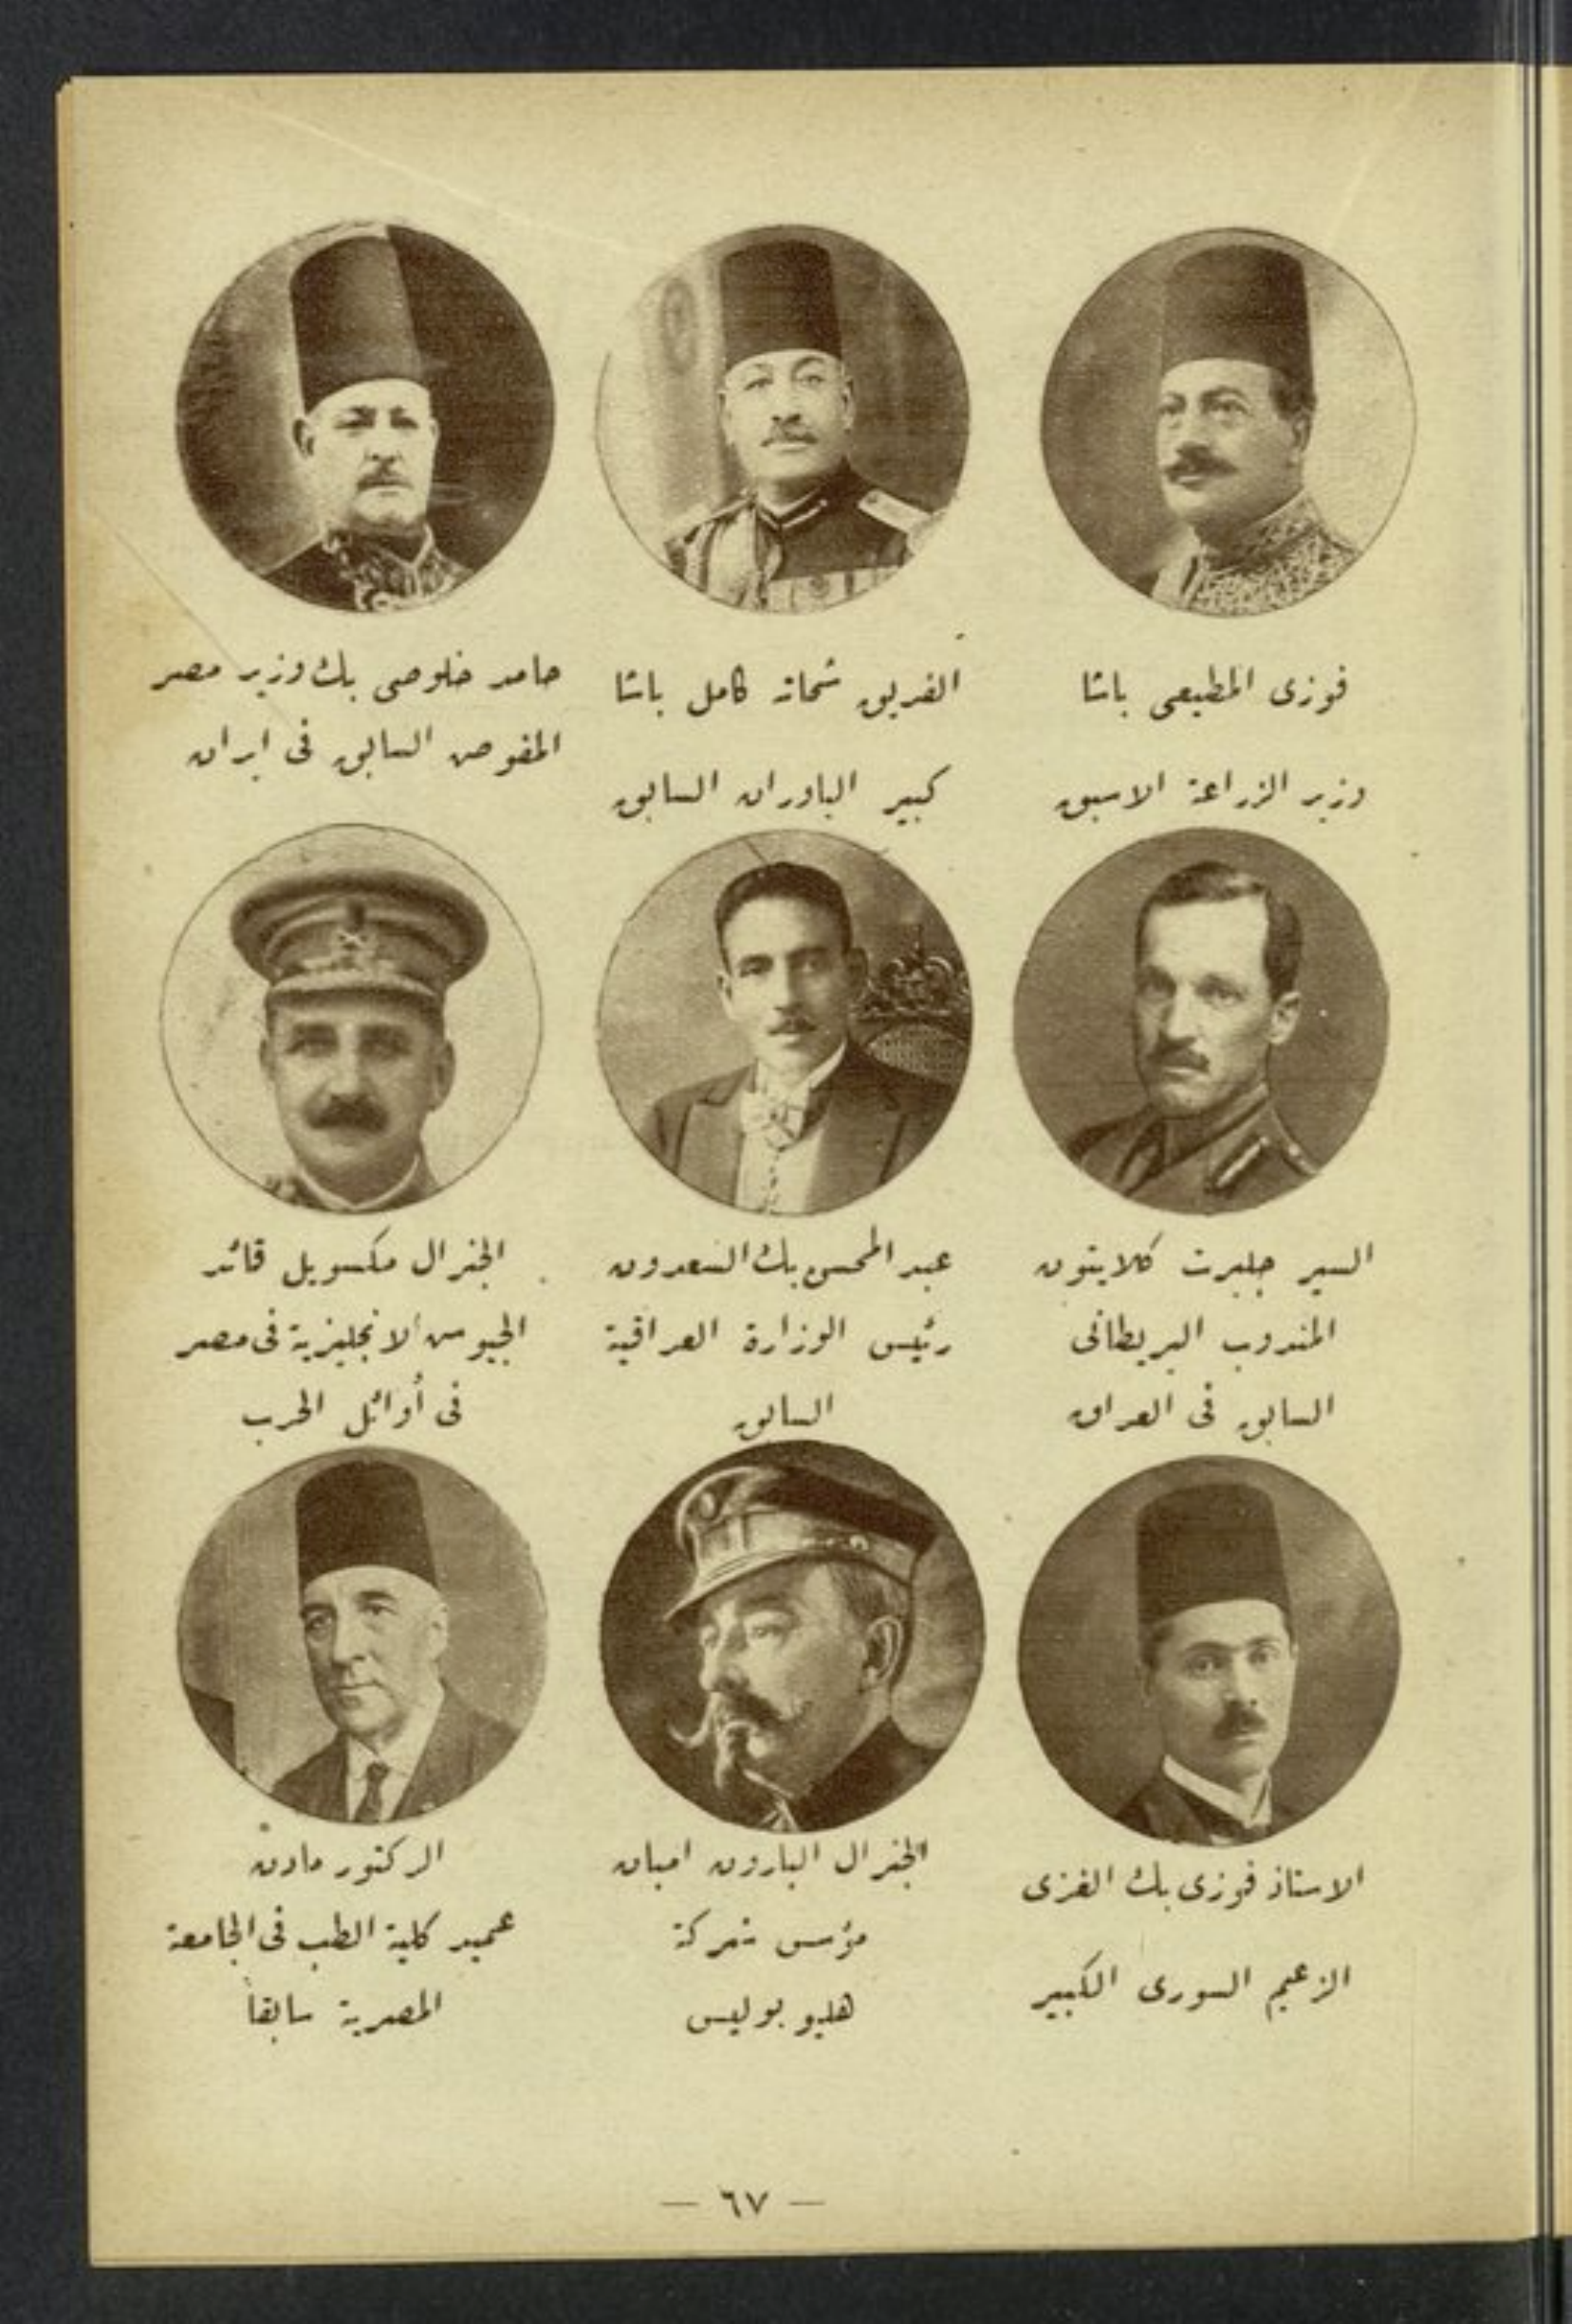 فوزى المطيعى باشا
وزير الزراعة الاسبق
الفريق شحاته كامل باشا
كبير الياوران السابق
حامد خلوصى بك وزير مصر
المفوض السابق فى ايران
السير جلبرت كلايتون
المندوب البريطانى
السابق فى العراق
عبد المحسن بك السعدون
رئيس الوزارة العراقية
السابق
الجنرال مكسويل قائد
الجيوش الانجليزية فى مصر
فى أوائل الحرب
الاستاذ فوزى بك الغزى
الزعيم السورى الكبير
الجنرال البارون امبان
مؤسس شركة
هليو بوليس
الدكتور مادن
عميد كلية الطب فى الجامعة
المصرية سابقاً
— ٦٧ —